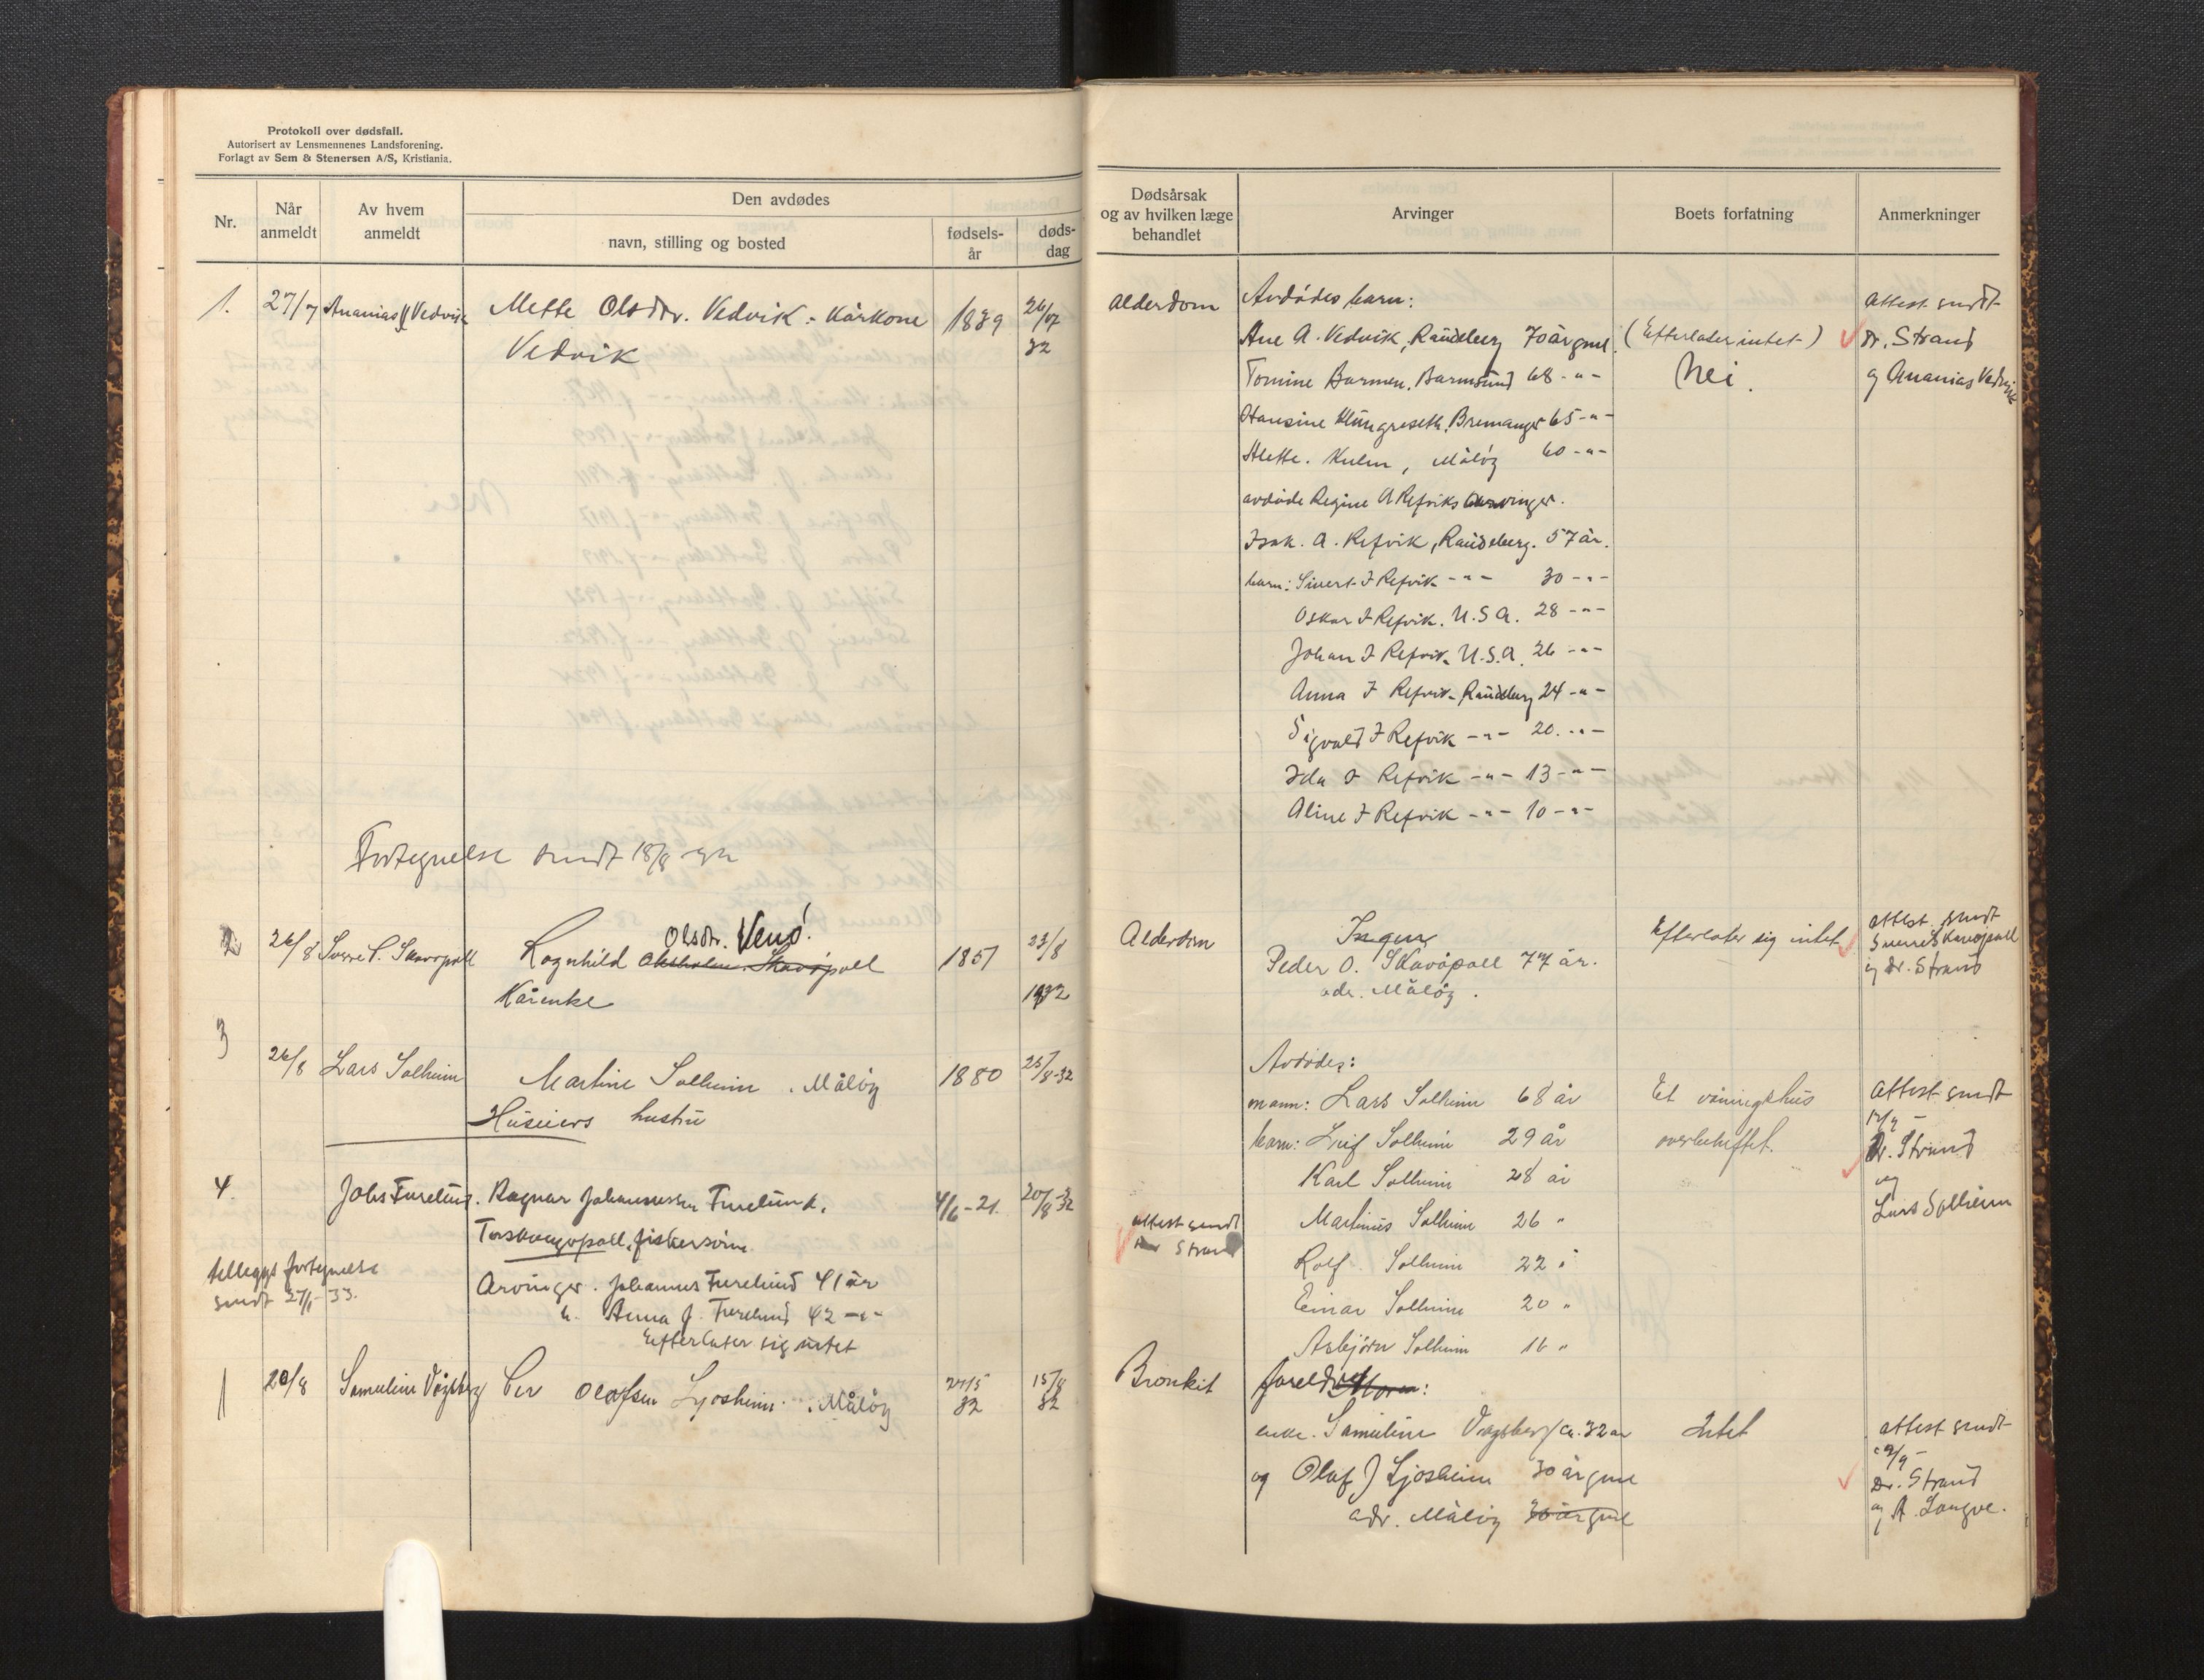 Protokoll over dødsfall.
Autorisert av Lensmennenes Landsforening.
Forlagt av Sem & Stenersen A/S, Kristiania.
Nr.
Når anmeldt
Av hvem anmeldt
Den avdødes
navn, stilling og bosted
fødsels-år
døds-dag
1. 27/7 Ananias Vedvik Mette Olsdr. Vedvik - Kårkone 1839 26/07
Vedvik 32
Fortegnelse sendt 18/8
2 26/8 Sverre P. Skavøpoll Ragnhild Olsdr. Skavøpoll 1851 23/8
Kårenke 1932
3
26/8 Lars Solheim Martine Solheim . Måløy 1880 25/8-32
Huseiers hustru
4. Johs Furelund. Ragnar Johannessen Furelund. 4/6-21. 20/8 32
Torskangerpoll, fiskersønn
tilleggs fortegnelse
sendt 27/1-33.
Arvinger. Johannes Furelund 41 år
Anna J. Furelund 42 -"-
Efterlater sig intet
1 20/8 Samuline Vågsberg Per Olafsen Ljosheim . Måløy 24/5 32 15/8 32
Dødsårsak
og av hvilken læge
behandlet
Arvinger
Boets forfatning
Anmerkninger
Alderdom
Avdødes barn:
Ane A. Vedvik, Raudeberg 70 år gml.
Tomine Barmen. Barmsund 68 -"-
Hansine Klungreseth. Bremanger 65 -"-
Mette. Kulen, Måløy 60 -"-
avdøde Regine A Refviks arvinger.
Isak. A. Refvik, Raudeberg. 57 år.
barn: Sivert I Refvik -"- 30 -"-
Oskar I Refvik. U.S.A. 28 -"-
Johan I Refvik U.S.A. 26 -"-
Anna I Refvik Raudeberg 24 -"-
Sigvald I Refvik -"- 20. -"-
Ida I Refvik -"- 13 -"-
Aline I Refvik -"- 10 -"-
(Efterlater intet)
Nei.
attest sendt
Dr. Strand
og Ananias Vedvik
Alderdom
Ingen
Peder O. Skavøpoll 77 år.
adr. Måløy.
Efterlater sig intet
attest sendt
Sverre Skavøpoll
og dr. Strand
Avdødes:
mann: Lars Solheim 68 år
barn: Leif Solheim 29 år
Karl Solheim 28 år
Martinus Solheim 26 "
Rolf Solheim 22 "
Einar Solheim 20 "
Asbjørn Solheim 16 "
Et våningshus
overbeheftet.
Attest sendt
Dr. Strand
og
Lars Solheim
attest sendt
Strand
Bronkit
foreldre:
enke. Samuline Vågsberg ca. 32 år
og Olaf J Ljosheim 30 år gml
adr. Måløy 30 år gml
Intet
attest sendt
Dr. Strand
og A. Longve.